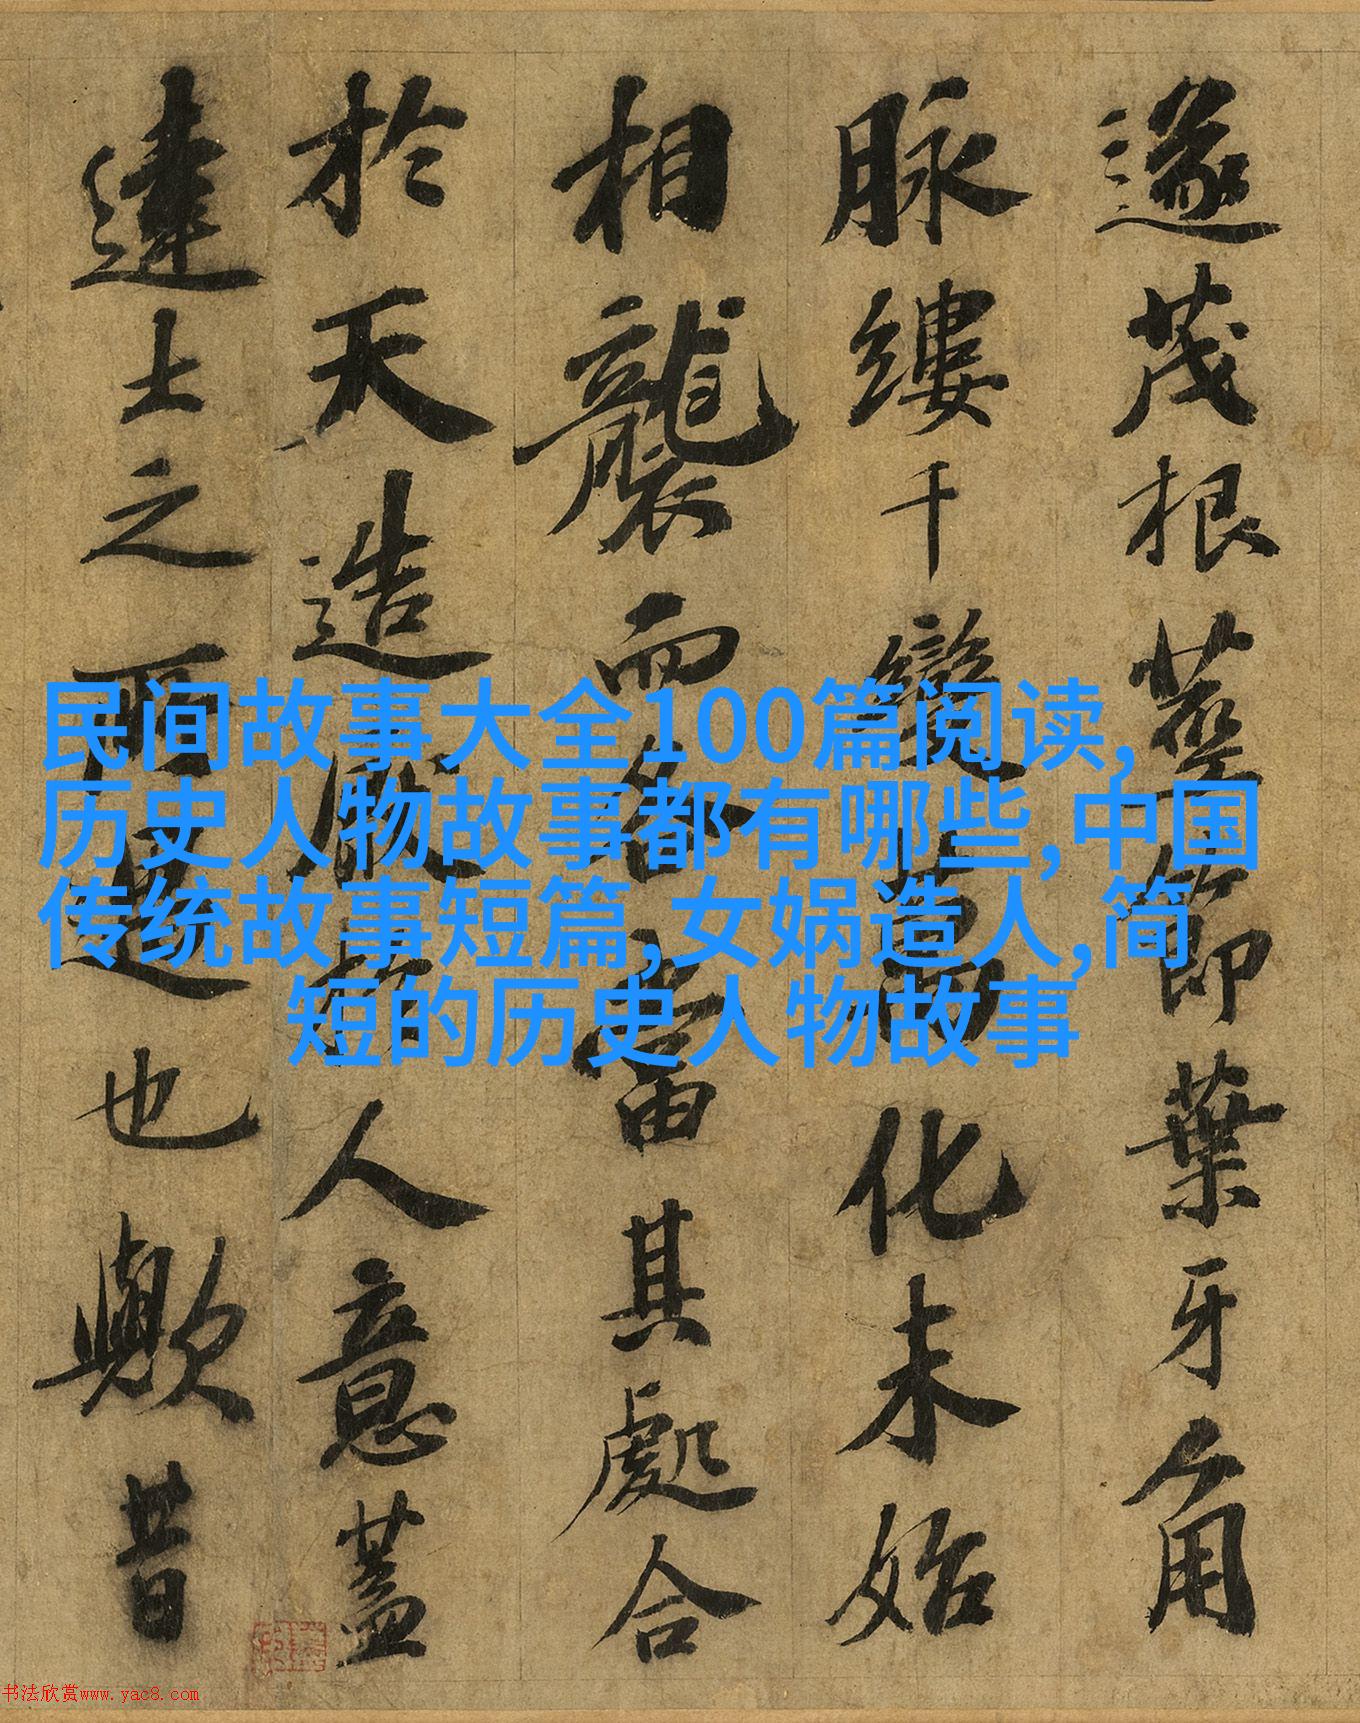 遂茂根莖節葉牙角
脉縷千變萬化未始
相襲而各當其處合
於天造厭於人意蓋
達士之所寓也歟昔
民间故事大全100篇阅读,
历史人物故事都有哪些,中国
传统故事短篇,女娲造人,简
短的历史人物故事
书法欣赏www.yac8.com